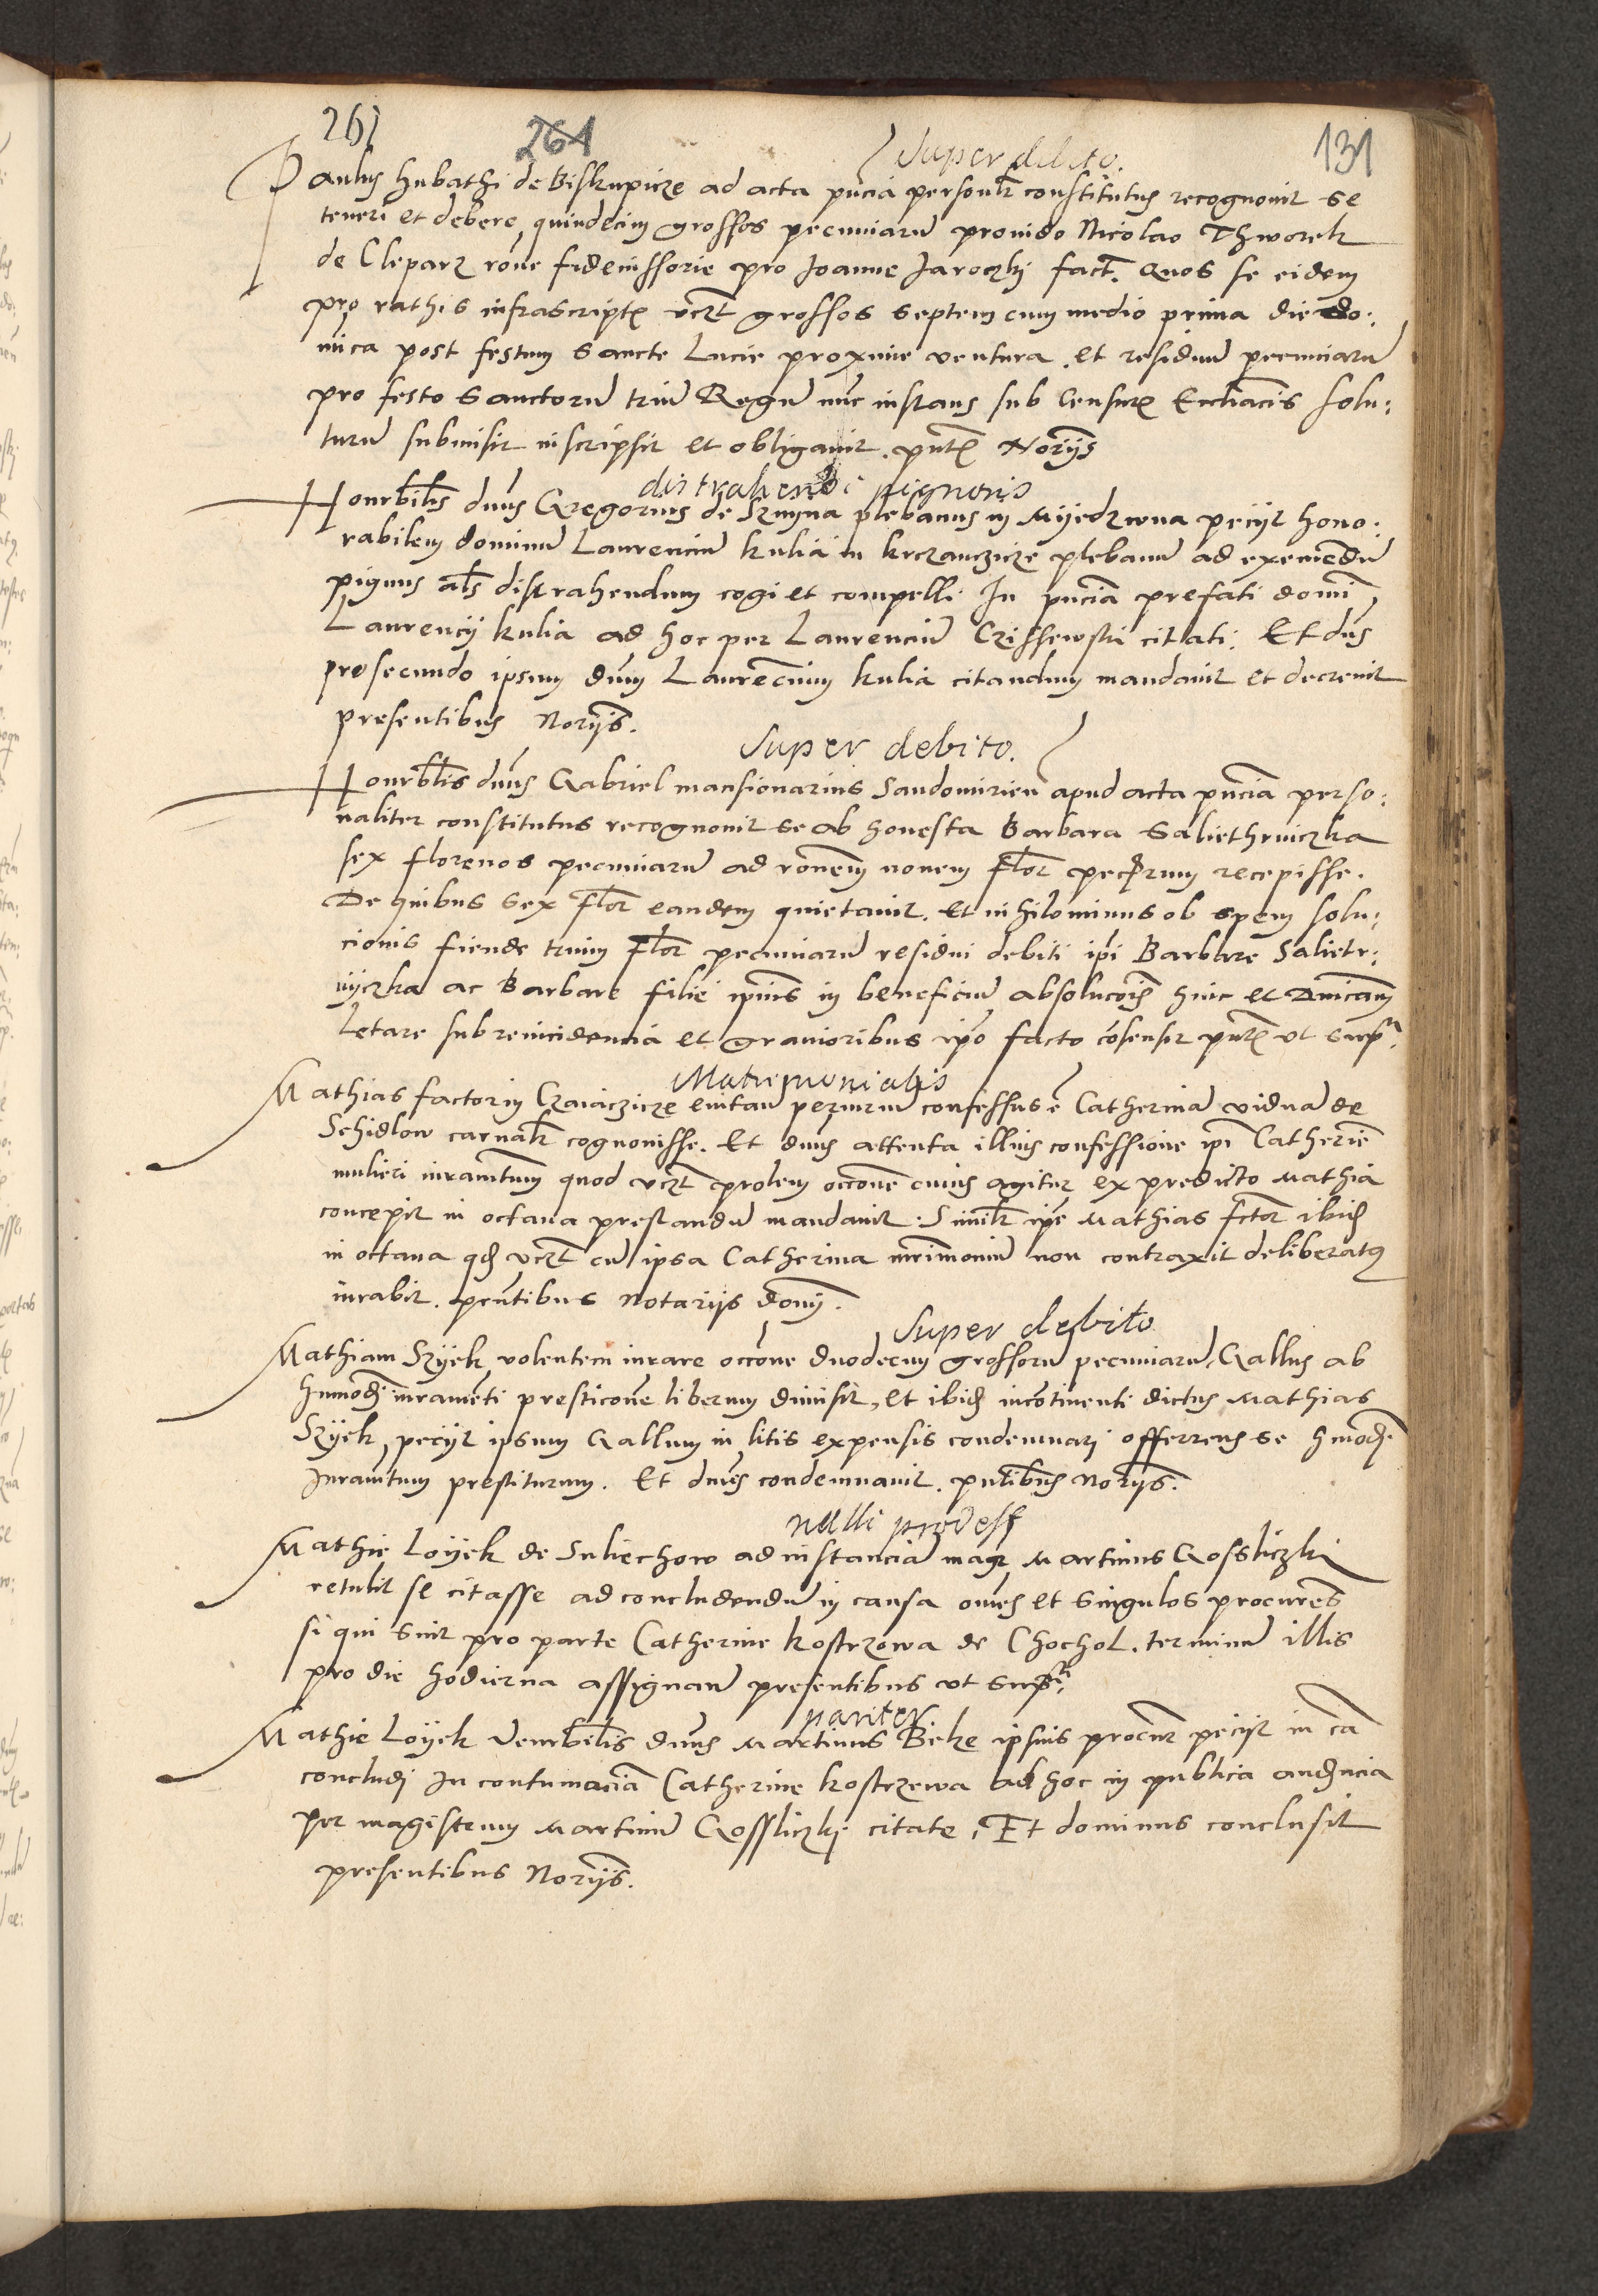 261 264 131
Super debito.
Paulus Hubathi de Biskupicze ad acta pñcia personlr constitutus recognovit se
teneri et debere quindecim grossos pecuniarũ provido Nicolao Thworek
de Cleparz rõne fideiussorie pro Joanne Jaroczki fact. Quos se eidem
pro rathis infrascriptis vczt grossos septem cum medio prima die do:
mica post festum sancte Lucie proxime ventura. et residuũ pecuniarũ
pro festo sanctorũ triũ Regũ nũc instans sub censuris Ecclĩacis solu:
turũ submisit inscripsit et obligavit. pñtĩ Norijs
distrahendi pignoris
Honrbilis dnũs Gregorius de Szmyna plebanus in Myedzwna pecijt hono:
rabilem dominũ Laurenciũ Kulia in Krczanczicze plebanũ ad eximendũ
pignus als distrahendum cogi et compelli In pnciã prefati domi
Laurencij Kulia ad hoc per Laurenciũ Czissewski citati. Et dũs
pro secundo ipsum dnũm Laurencium Kulia citandum mandavit et decrevit
presentibus Norijs.
Super debito.
Honrblis dnũs Gabriel mansionarius Sandomirieñ apud acta pñcia perso:
naliter constitutus recognovit se ab honesta Barbara Saliethrniczka
sex florenos pecuniarũ ad rõnem novem flor pecrum recepisse.
De quibus sex flor eandem quietavit. Et nihilominus ob spem solu:
cionis fiende trium flor pecuniarũ residui debiti ipi Barbare Salietr:
nyczka ac Barbare filie ipius in beneficiũ absolucõis hinc et Dnicam
Letare sub reincidencia et gravioribus ipo facto cõsensit pñtĩ ut supr.
Matrimonialis
Mathias factor in Czaiaczicze evitañ periuriũ confessus ẽ Catherinã viduã de
Schidlow carnalr cognovisse. Et dnũs attenta illius confessione ipĩ Catherie
mulieri iuramtum quod vczt prolem occone cuius agitur ex predicto Mathia
concepit in octava prestandũ mandavit. Similr ipe Mathias fctor ibid
in octava qd vczt cũ ipsa Catherina mrimoniũ non contraxit deliberatq
iurabit. presentibus Notarijs domj.
Super debito
Mathiam Szyek volentem iurare occone duodecim grossorũ pecuniarũ, Gallus ab
hmodi iuramẽti presticone liberum dimisit, et ibid incõtinenti dictus Mathias
Szyek pecijt ipsum Gallum in litis expensis condemnari offerrens se hmodi
Iuramtum prestiturum. Et dnũs condemnavit. pñtibus Norijs.
Mathie Loyek de Suliechow ad instanciã magr Martinus Gosliczki
retulit se citasse ad concludendũ in causa omẽs et singulos procurẽs
si qui sint pro parte Catherine Kostrzewa de Chochol. terminũ illis
pro die hodierna assignañ presentibus ut supr.
pariter
Mathie Loyek Venrbilis dnũs Martinus Beke ipsius procur pecijt in cã
concludi In contumaciã Catherine Kostrzewa ad hoc in publica audiencia
per magistrum Martinũ Gossliczki citate, Et dominus conclusit
presentibus Norijs.